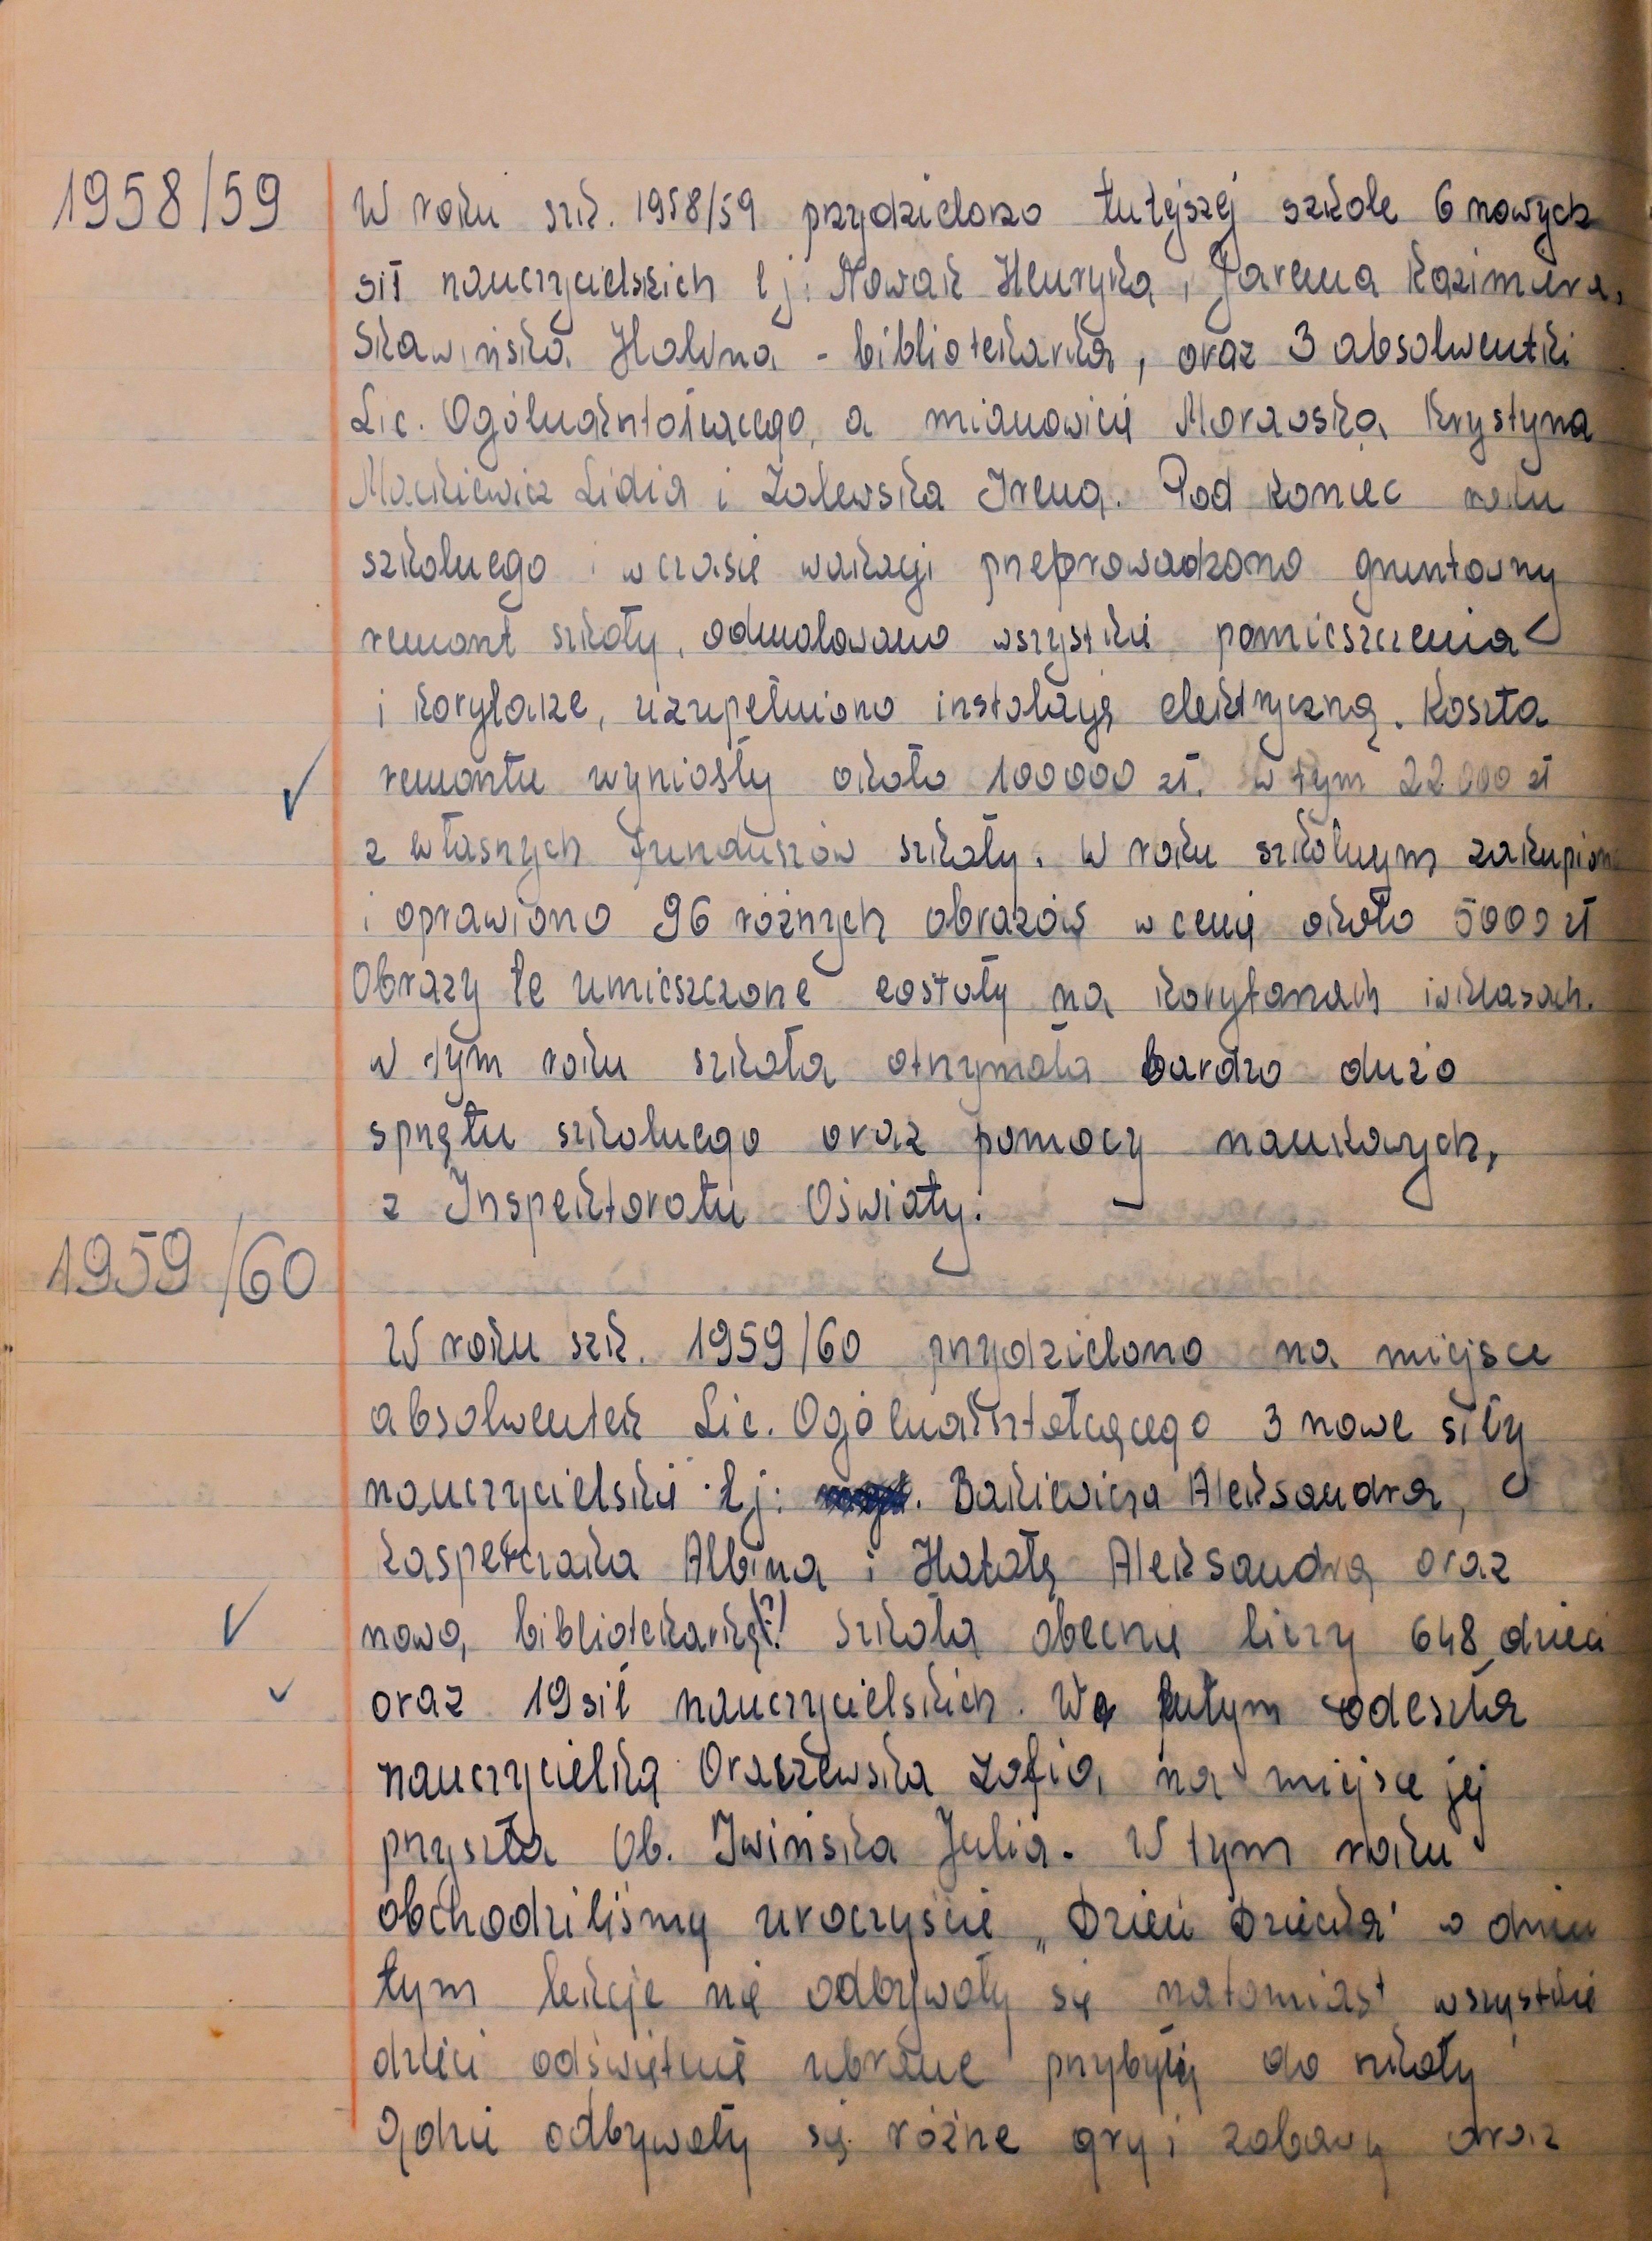 1958/59
W roku szk. 1958/59 przydzielono tutejszej szkole 6 nowych
sił nauczycielskich tj: Nowak Henryka, Jarema Kazimiera,
Skawińska Halina - bibliotekarka, oraz 3 absolwentki
Lic. Ogólnokształcącego, a mianowicie Morawska Krystyna
Mackiewicz Lidia i Zalewska Irena. Pod koniec roku
szkolnego i w czasie wakacji przeprowadzono gruntowny
remont szkoły, odmalowano wszystkie pomieszczenia
i korytarze, uzupełniono instalację elektryczną. Koszta
remontu wyniosły około 100000 zł. w tym 22000 zł
z własnych funduszów szkoły. W roku szkolnym zakupiono
i oprawiono 96 różnych obrazów w cenie około 5000 zł
Obrazy te umieszczone zostały na korytarzach i w klasach.
W tym roku szkoła otrzymała bardzo dużo
sprzętu szkolnego oraz pomocy naukowych,
z Inspektoratu Oświaty.
1959/60
W roku szk. 1959/60 przydzielono na miejsce
absolwentek Lic. Ogólnokształcącego 3 nowe siły
nauczycielskie tj: Bakiewicza Aleksandra,
Kasperczaka Albina i Hatałę Aleksandrą oraz
nową bibliotekarkę(?) Szkoła obecnie liczy 648 dzieci
oraz 19 sił nauczycielskich. W lutym odeszła
nauczycielka Oraczewska Zofia, na miejsce jej
przyszła Ob. Iwińska Julia. W tym roku
obchodziliśmy uroczyście „Dzień Dziecka" w dniu
tym lekcje nie odbywały się natomiast wszystkie
dzieci odświętnie ubrane przybyły do szkoły
Gdzie odbywały się różne gry i zabawy oraz